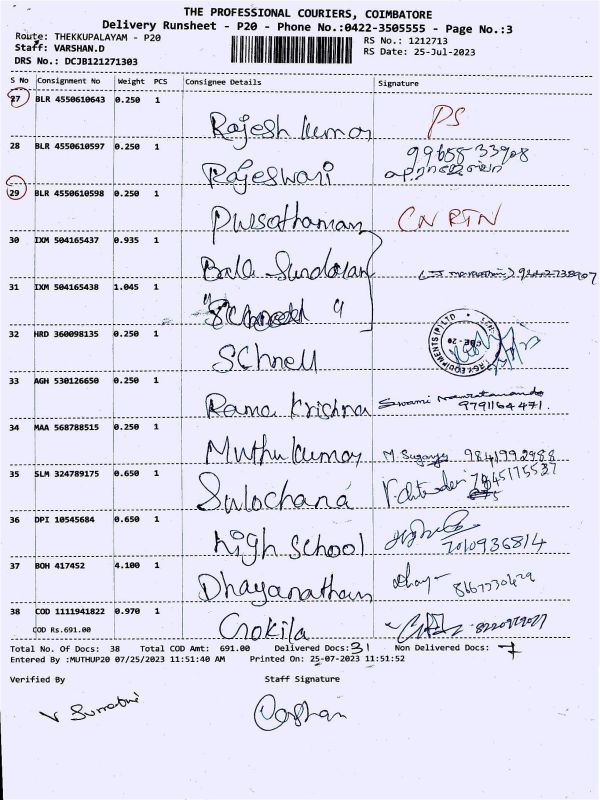 THE PROFESSIONAL COURIERS, COIMBATORE
Delivery Runsheet - P20 - Phone No.:0422-3505555 - Page No.:3
Route: THEKKUPALAYAM - P20
RS No.: 1212713
Staff: VARSHAN.D
RS Date: 25-Jul-2023
DRS No.: DCJB121271303
S No Consignment No Weight PCS Consignee Details Signature
27 BLR 4550610643 0.250 1 Rajesh kumar PS
28 BLR 4550610597 0.250 1 Rajeswari 99658 33908
29 BLR 4550610598 0.250 1 Pursothaman CN RTN
30 IXM 504165437 0.935 1 Bala Sundaran
31 IXM 504165438 1.045 1 "
32 HRD 360098135 0.250 1 SChnell
33 AGH 530126650 0.250 1 Rama Krishna Swami
9791164471.
34 MAA 568788515 0.250 1 Muthu kumar M. Suganya 9841992988
35 SLM 324789175 0.650 1 Sulochana
36 DPI 10545684 0.650 1 high school 7010936814
37 BOH 417452 4.100 1 Dhayanathan
38 COD 1111941822 0.970 1 Gokila
COD Rs.691.00
Total No. Of Docs: 38 Total COD Amt: 691.00 Delivered Docs:31 Non Delivered Docs: 7
Entered By :MUTHUP20 07/25/2023 11:51:40 AM Printed On: 25-07-2023 11:51:52
Verified By Staff Signature
Varshan